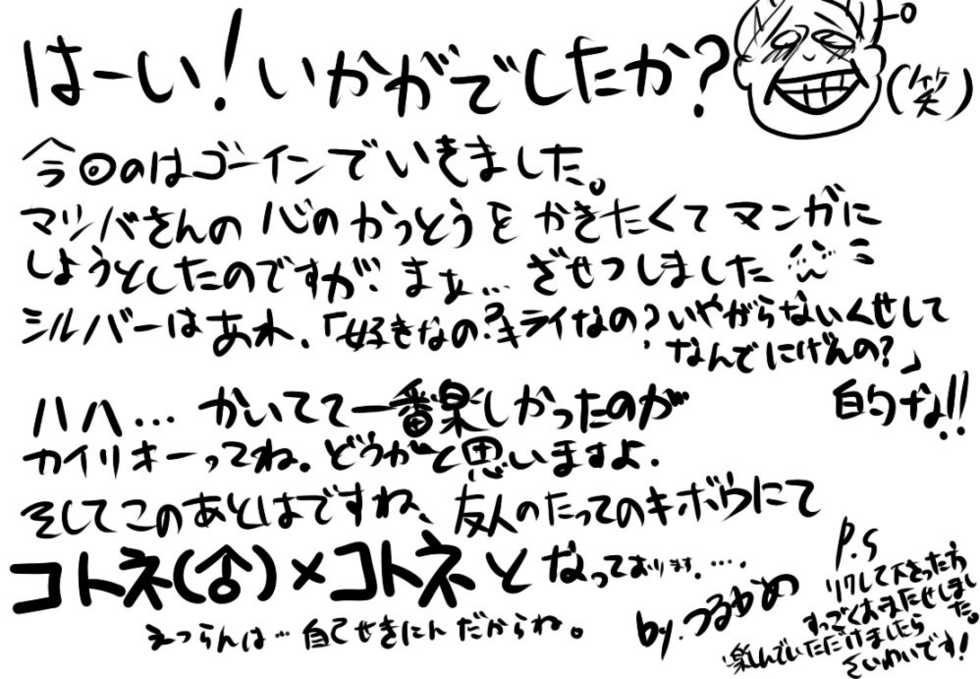 はーい!いかがでしたか?
(笑)
今回のはゴーインでいきました。
マツバさんの心のかっとうをかきたくてマンガに
しようとしたのですが、まぁ…ざせつしました
シルバーはあれ、「好きなの?キライなの?いやがらないくせして
なんでにげんの?」
的な!!
ハハ…かいてて一番楽しかったのが
カイリキーってね。どうかと思いますよ.
そしてこのあとはですね、友人のたってのキボウにて
コトネ(♂)×コトネとなっております.…
えつらんは…自己せきにんだからね。
by.つるかめ
P.S
リクして下さった方
すっごくおまたせしました。
楽しんでいただけましたら
さいわいです!